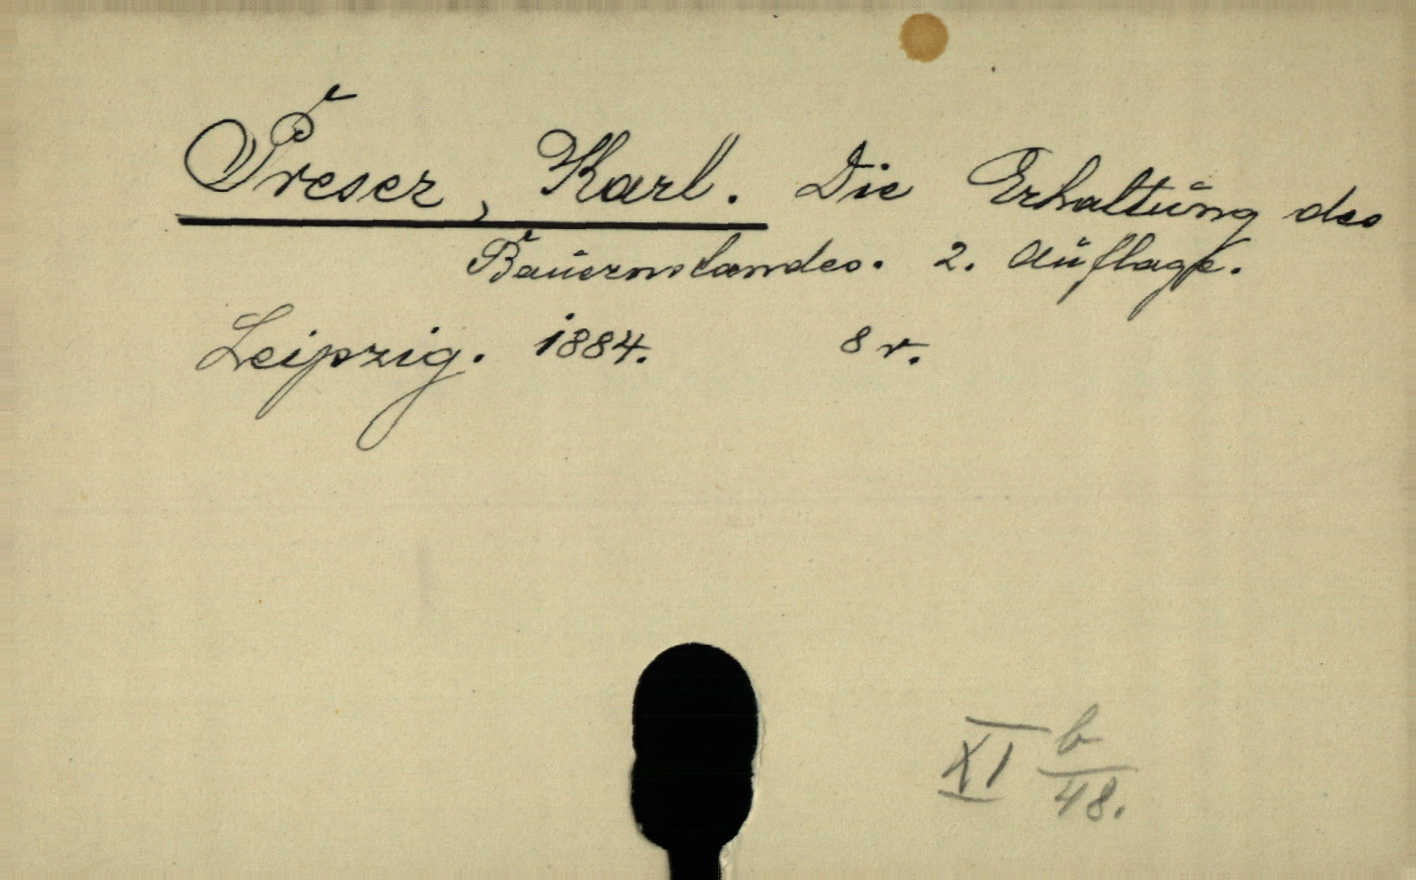 Preser, Karl. Die Erhaltung des
Bauernstandes. 2. Auflage.
Leipzig. 1884. 8 r.
XI b
48.